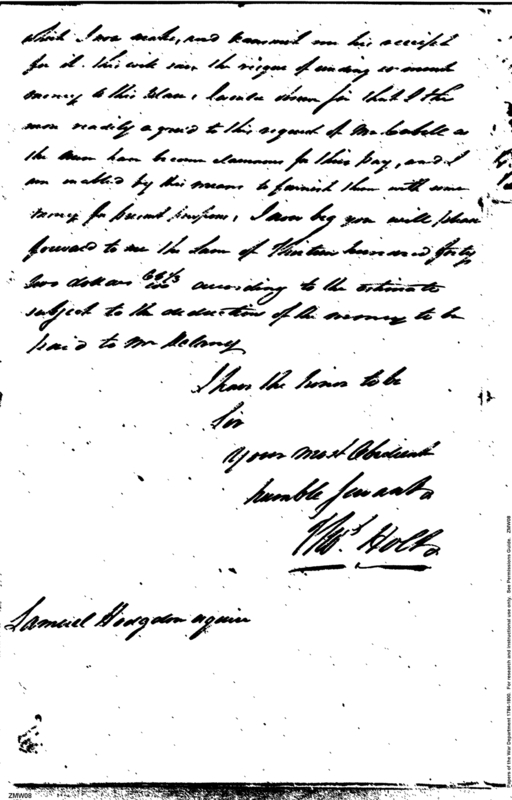 which I now make, and transmit me his receipt
for it. this will save the risque of sending so much
money to this place, I would observe for that I the
more readily agreed to this request of Mr as
the men have become clamorous for their Pay, and I
am enabled by this means to furnish them with some
money for present purposes, I now beg you will please
forward to me the Sum of Thirteen hundred forty
two dollars 66⅔/100 according to the estimate
subject to the deduction of the money to be
paid to Mr Delany
I have the honor to be
Sir
Your most Obedient
humble Servant
Thos. Holt
Samuel Hodgdon esquire
Papers of the War Department 1784-1800. For research and instructional use only. See Permissions Guide. ZMW08
ZMW08